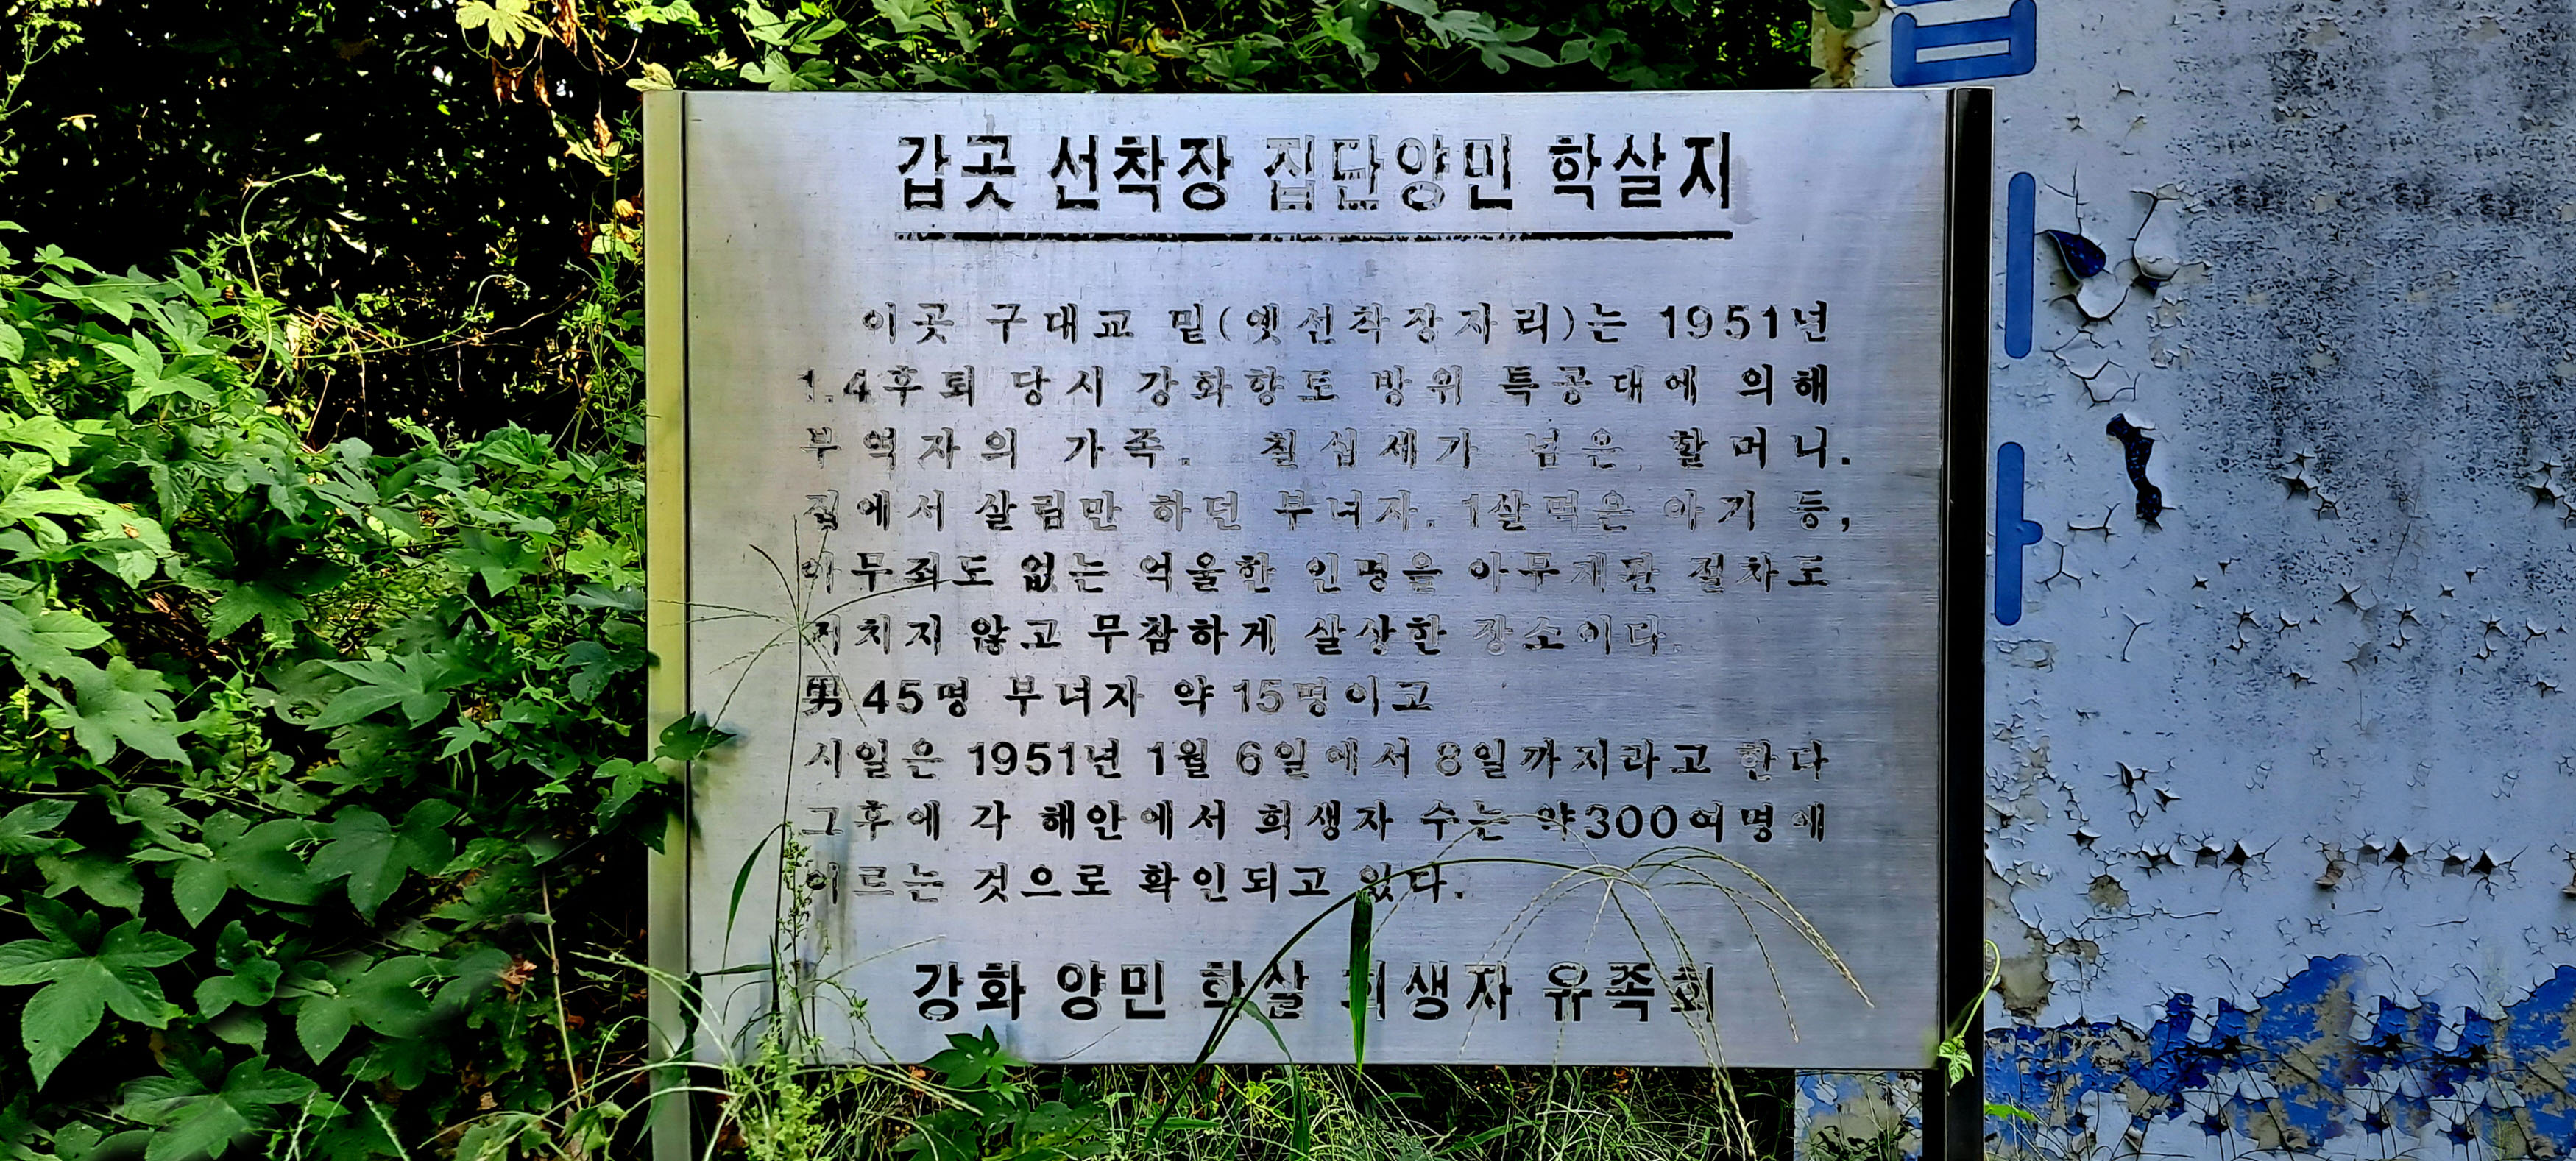 갑곶 선착장 집단양민 학살지
이곳 구대교 밑(옛선착장자리)는 1951년
1.4후퇴 당시 강화향토 방위 특공대에 의해
부역자의 가족. 칠십세가 넘은 할머니.
집에서 살림만 하던 부녀자. 1살먹은 아기 등,
아무죄도 없는 억울한 인명을 아무재판 절차도
거치지 않고 무참하게 살상한 장소이다.
男45명 부녀자 약 15명이고
시일은 1951년 1월 6일에서 8일까지라고 한다
그후에 각 해안에서 희생자 수는 약300여명에
이르는 것으로 확인되고 있다.
강화 양민 학살 희생자 유족회